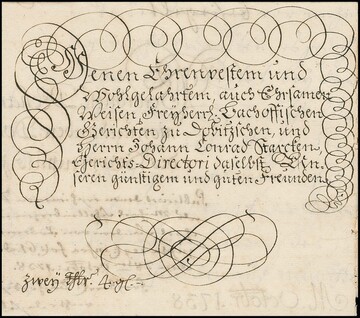 Denen Ehrenvestem und
Wohlgelahrtem, auch Ehrsamen
Weisen, Freyherrl. Bachoffischen
Gerichten zu Dobitzschen, und
Herrn Johann Conrad Starcken,
Gerichts-Directori daselbst, Un-
seren günstigem und guten Freunden
zwey Thr. 4 gl.